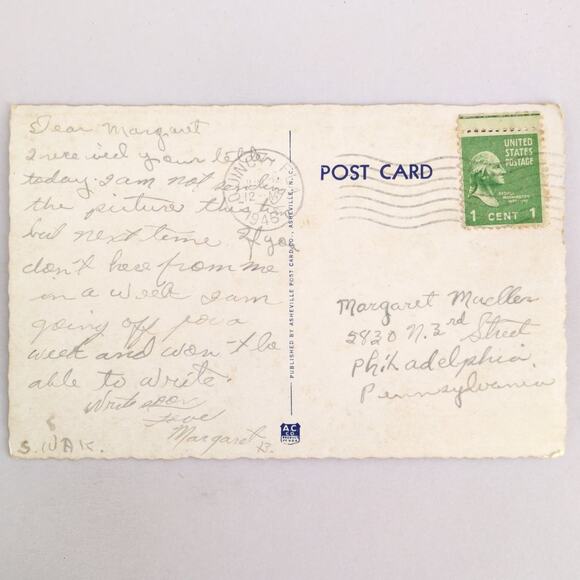 Dear Margaret
I received your letter
today. I am not sending
the picture this time
but next time. If you
don't hear from me
in a week I am
going off for a
week and won't be
able to write.
Write soon
Love
Margaret B.
S.W.A.K.
1946
PUBLISHED BY ASHEVILLE POST CARD CO., ASHEVILLE, N.C.
A C
CO
POST CARD
UNITED
STATES
POSTAGE
1 CENT 1
Margaret Mueller
2820 N. 3rd Street
Philadelphia
Pennsylvania